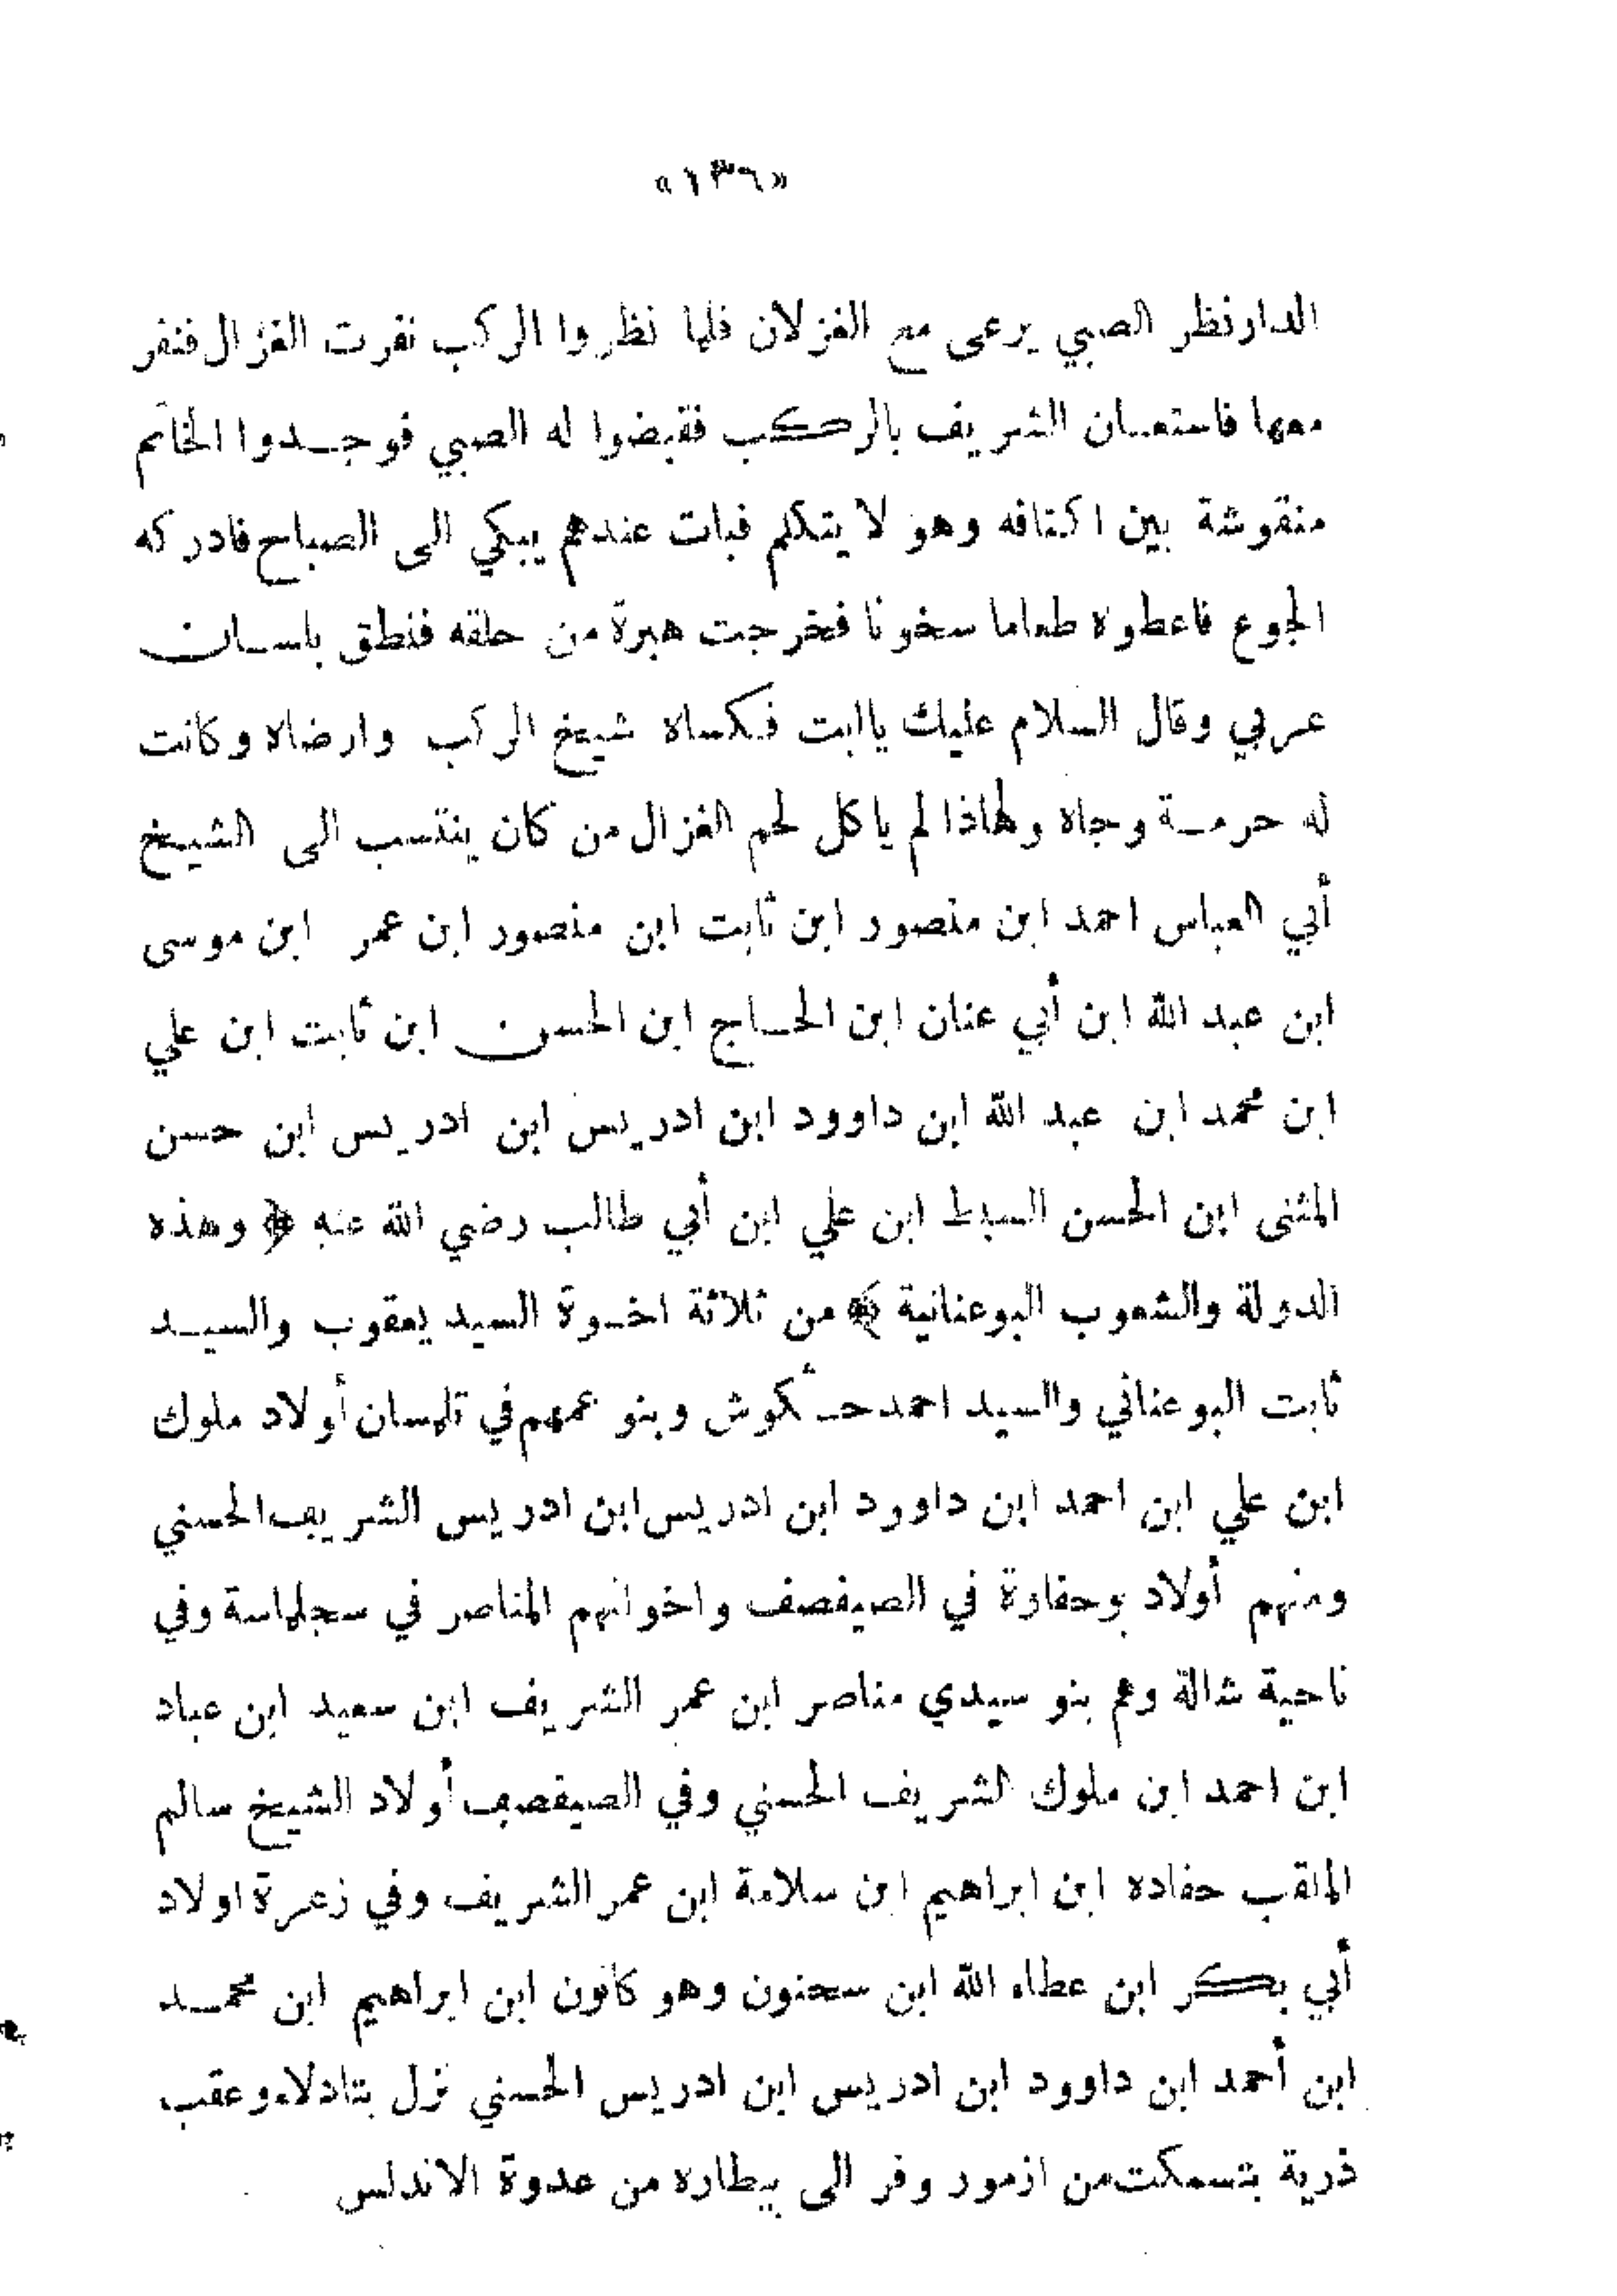 «١٣٦»
الدار نظر الصبي يرعى مع الغزلان فلما نظروا الركب نفرت الغزال فنفر
معها فاستعان الشريف بالركب فقبضوا له الصبي فوجدوا الخاتم
منقوشة بين اكتافه وهو لا يتكلم فبات عندهم يبكي الى الصباح فادركه
الجوع فاعطوه طعاما سخونا فخرجت هبرة من حلقه فنطق بلسان
عربي وقال السلام عليك ياابت فكساه شيخ الركب وارضاه وكانت
له حرمة وجاه ولهاذا لم ياكل لحم الغزال من كان ينتسب الى الشيخ
أبي العباس احمد ابن منصور ابن ثابت ابن منصور ابن عمر ابن موسى
ابن عبد الله ابن أبي عنان ابن الحاج ابن الحسن ابن ثابت ابن علي
ابن محمد ابن عبد الله ابن داوود ابن ادريس ابن ادريس ابن حسن
المثنى ابن الحسن السبط ابن علي ابن أبي طالب رضي الله عنه ﴿ وهذه
الدولة والشعوب البوعنانية ﴾ من ثلاثة اخوة السيد يعقوب والسيد
ثابت البوعناني والسيد احمد حـكوش وبنو عمهم في تلمسان أولاد ملوك
ابن علي ابن احمد ابن داوود ابن ادريس ابن ادريس الشريف الحسني
ومنهم أولاد بوحفارة في الصيفصف واخوانهم المناصر في سجلماسة وفي
ناحية شالة وهم بنو سيدي مناصر ابن عمر الشريف ابن سعيد ابن عباد
ابن احمد ابن ملوك الشريف الحسني وفي الصيفصف أولاد الشيخ سالم
الملقب حفاده ابن ابراهيم ابن سلامة ابن عمر الشريف وفي زعرة اولاد
أبي بكر ابن عطاء الله ابن سحنون وهو كانون ابن ابراهيم ابن محمد
ابن أحمد ابن داوود ابن ادريس ابن ادريس الحسني نزل بتادلاء وعقب
ذرية بتسمكت من ازمور وفر الى بيطاره من عدوة الاندلس